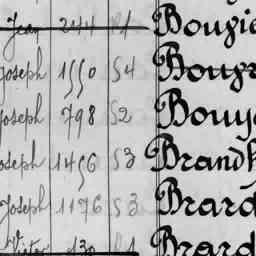 Jean 2144 Bouzie
Joseph 1550 S4 Bouzr
Joseph 798 S2 Bouy
Joseph 1456 S3 Brandh
Joseph 1176 S3 Brard
Victor 130 Brard